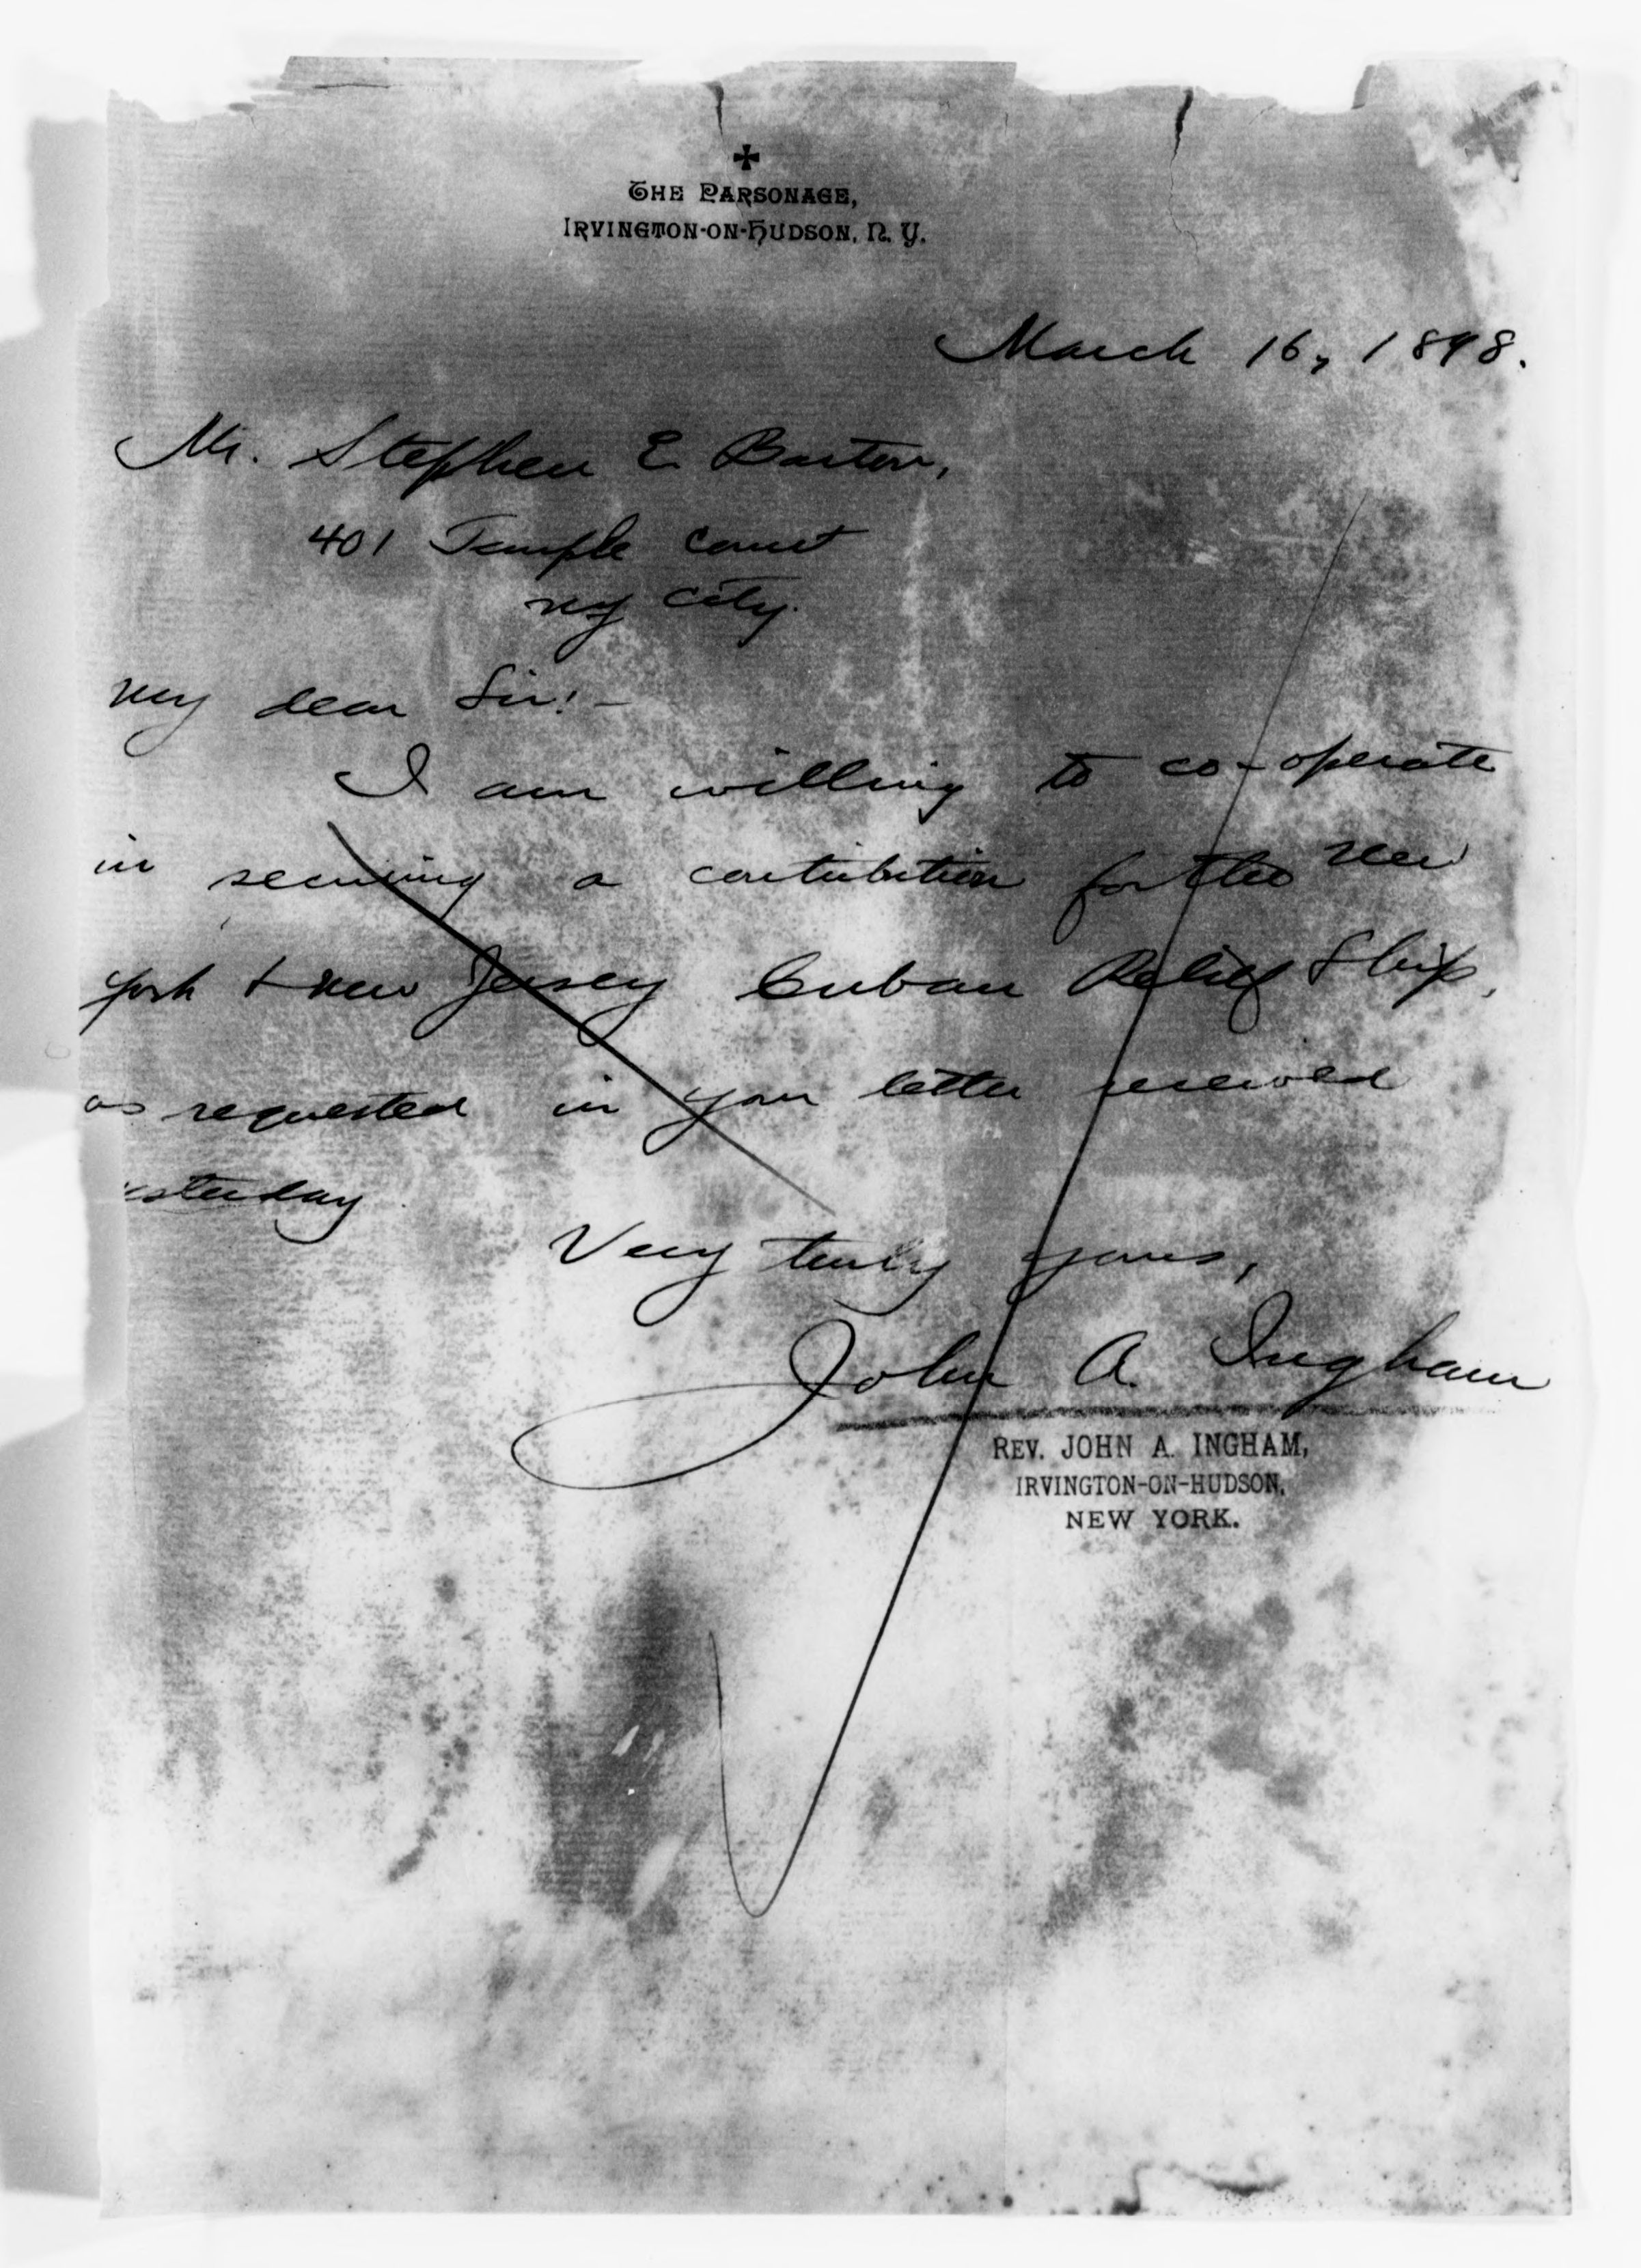 THE PARSONAGE,
IRVINGTON-ON-HUDSON, N. Y.
March 16, 1898.
Mr. Stephen E. Barton,
401 Temple Court
NY City.
My dear Sir:-
I am willing to co-operate
in securing a contribution for the New
York & New Jersey Cuban Relief Ship,
as requested in your letter received
esterday.
Very truly yours,
John A. Ingham
REV. JOHN A. INGHAM,
IRVINGTON-ON-HUDSON,
NEW YORK.